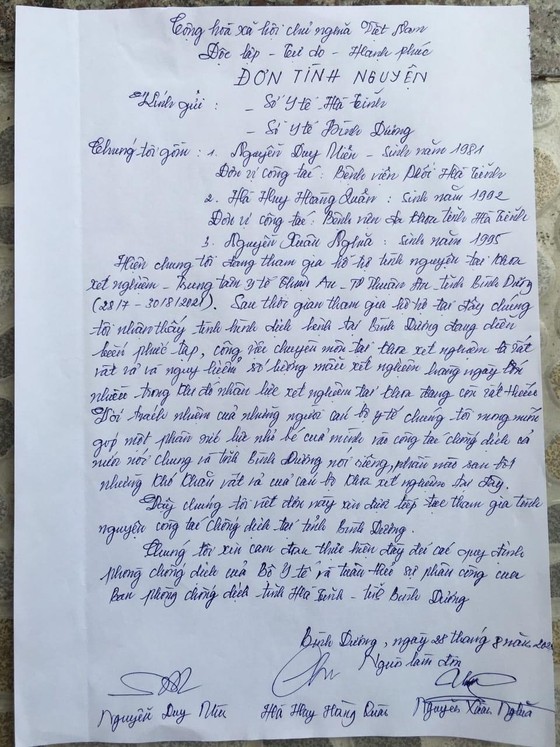 Cộng hoà xã hội chủ nghĩa Việt Nam
Độc lập - Tự do - Hạnh phúc
ĐƠN TÌNH NGUYỆN
Kính gửi : - Sở Y tế Hà Tĩnh
- Sở Y tế Bình Dương
Chúng tôi gồm : 1. Nguyễn Duy Miễn - Sinh năm 1981
Đơn vị công tác : Bệnh viện Phổi Hà Tĩnh
2. Hà Huy Hoàng Quân : sinh năm 1992
Đơn vị công tác : Bệnh viện đa khoa tỉnh Hà Tĩnh
3. Nguyễn Xuân Nghĩa : sinh năm 1995
Hiện chúng tôi đang tham gia hỗ trợ tình nguyện tại khoa
xét nghiệm - Trung tâm y tế Thuận An - TP Thuận An - tỉnh Bình Dương
(28/7 - 30/8/2021). Sau thời gian tham gia hỗ trợ tại đây chúng
tôi nhận thấy tình hình dịch bệnh tại Bình Dương đang diễn
biến phức tạp, công việc chuyên môn tại khoa xét nghiệm là rất
vất vả và nguy hiểm, số lượng mẫu xét nghiệm hàng ngày lớn
nhiều trong khi đó nhân lực xét nghiệm tại khoa đang còn rất thiếu
Với trách nhiệm của những người cán bộ y tế chúng tôi mong muốn
góp một phần sức lực nhỏ bé của mình vào công tác chống dịch cả
nước nói chung và tỉnh Bình Dương nói riêng, phần nào san bớt
những khó khăn vất vả của cán bộ khoa xét nghiệm tại đây.
Vậy chúng tôi viết đơn này xin được tiếp tục tham gia tình
nguyện công tác chống dịch tại tỉnh Bình Dương.
Chúng tôi xin cam đoan thực hiện đầy đủ các quy định
phòng chống dịch của Bộ Y tế và tuân theo sự phân công của
ban phòng chống dịch tỉnh Hà Tĩnh - tỉnh Bình Dương
Bình Dương, ngày 28 tháng 8 năm
Người làm đơn
Nguyễn Duy Hà Huy Hoàng Quân Nguyễn Xuân Nghĩa